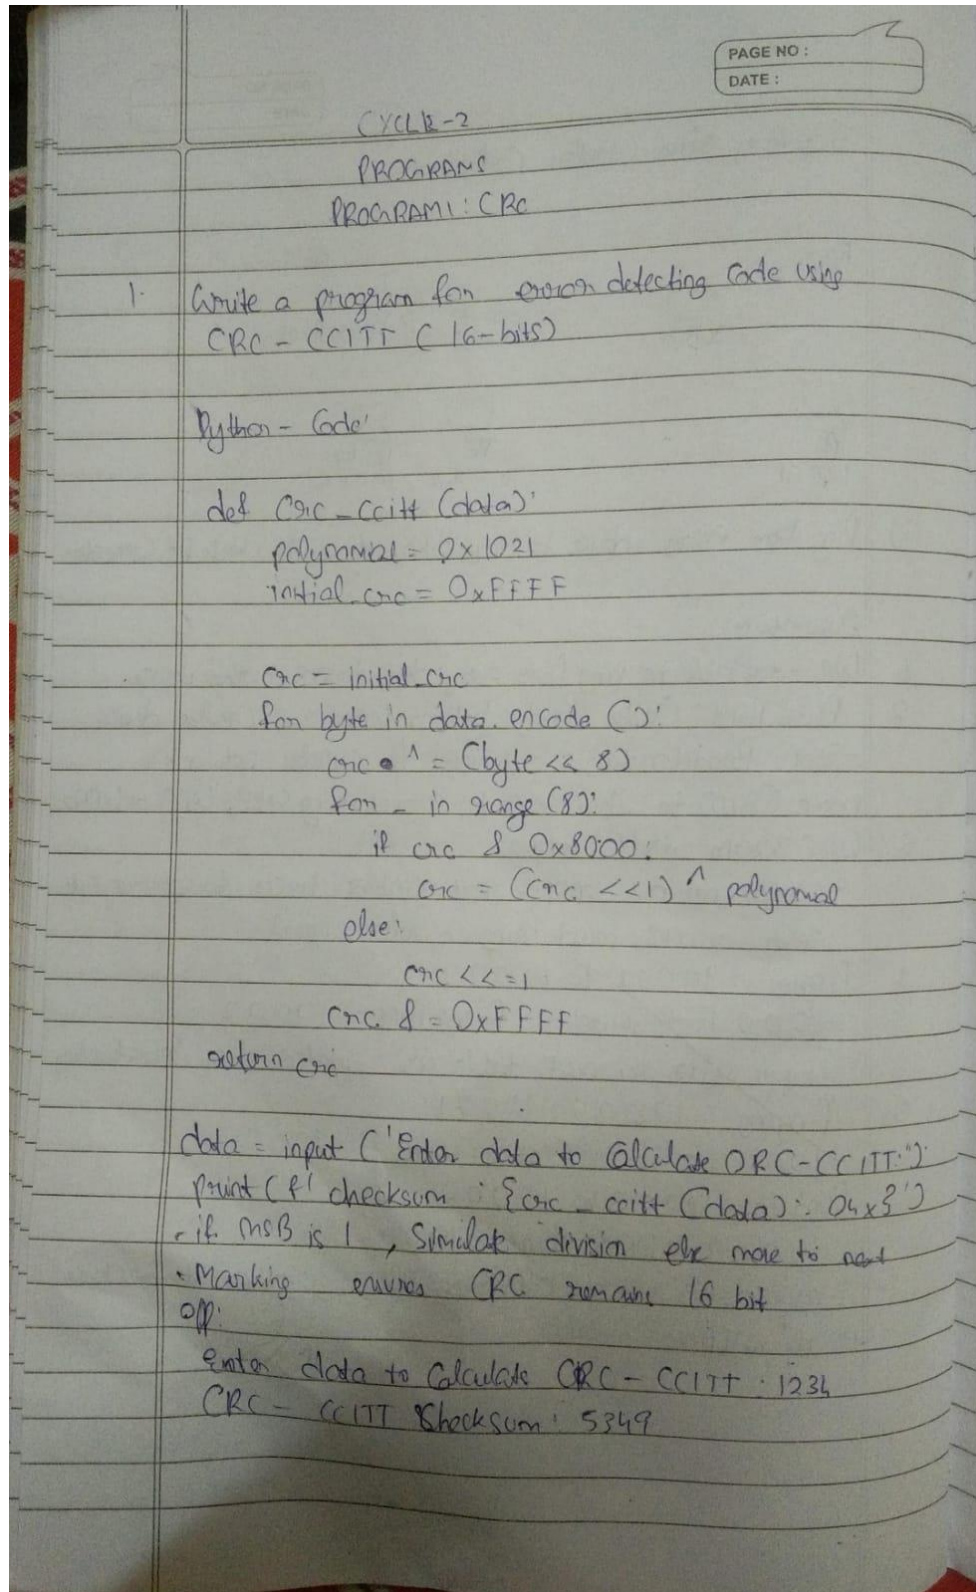 PAGE NO :
DATE :
CYCLE-2
PROGRAMS
PROGRAM1: CRC
1. Write a program for error detecting Code using
CRC - CCITT ( 16-bits)
Python - Code:
def crc_ccitt (data):
polynomial = 0x1021
initial_crc = 0xFFFF
crc = initial_crc
for byte in data.encode ():
crc ^ = (byte << 8)
for _ in range (8):
if crc & 0x8000:
crc = (crc <<1) ^ polynomial
else:
crc <<=1
crc & = 0xFFFF
return crc
data = input ('Enter data to Calculate CRC-CCITT:")
print (f' checksum : {crc_ccitt (data): 04x}')
• if MSB is 1, Simulate division else move to next
• Marking ensures CRC remains 16 bit
O/P:
Enter data to Calculate CRC - CCITT : 1234
CRC - CCITT Checksum: 5349